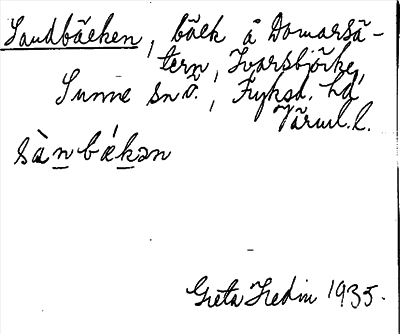 Sandbäcken, bäck å Domarsä-
tern, Ivarsbjörke,
Sunne snö., Fryksd. hd,
Värml. l.
sànbǽkən
Greta Hedin 1935.